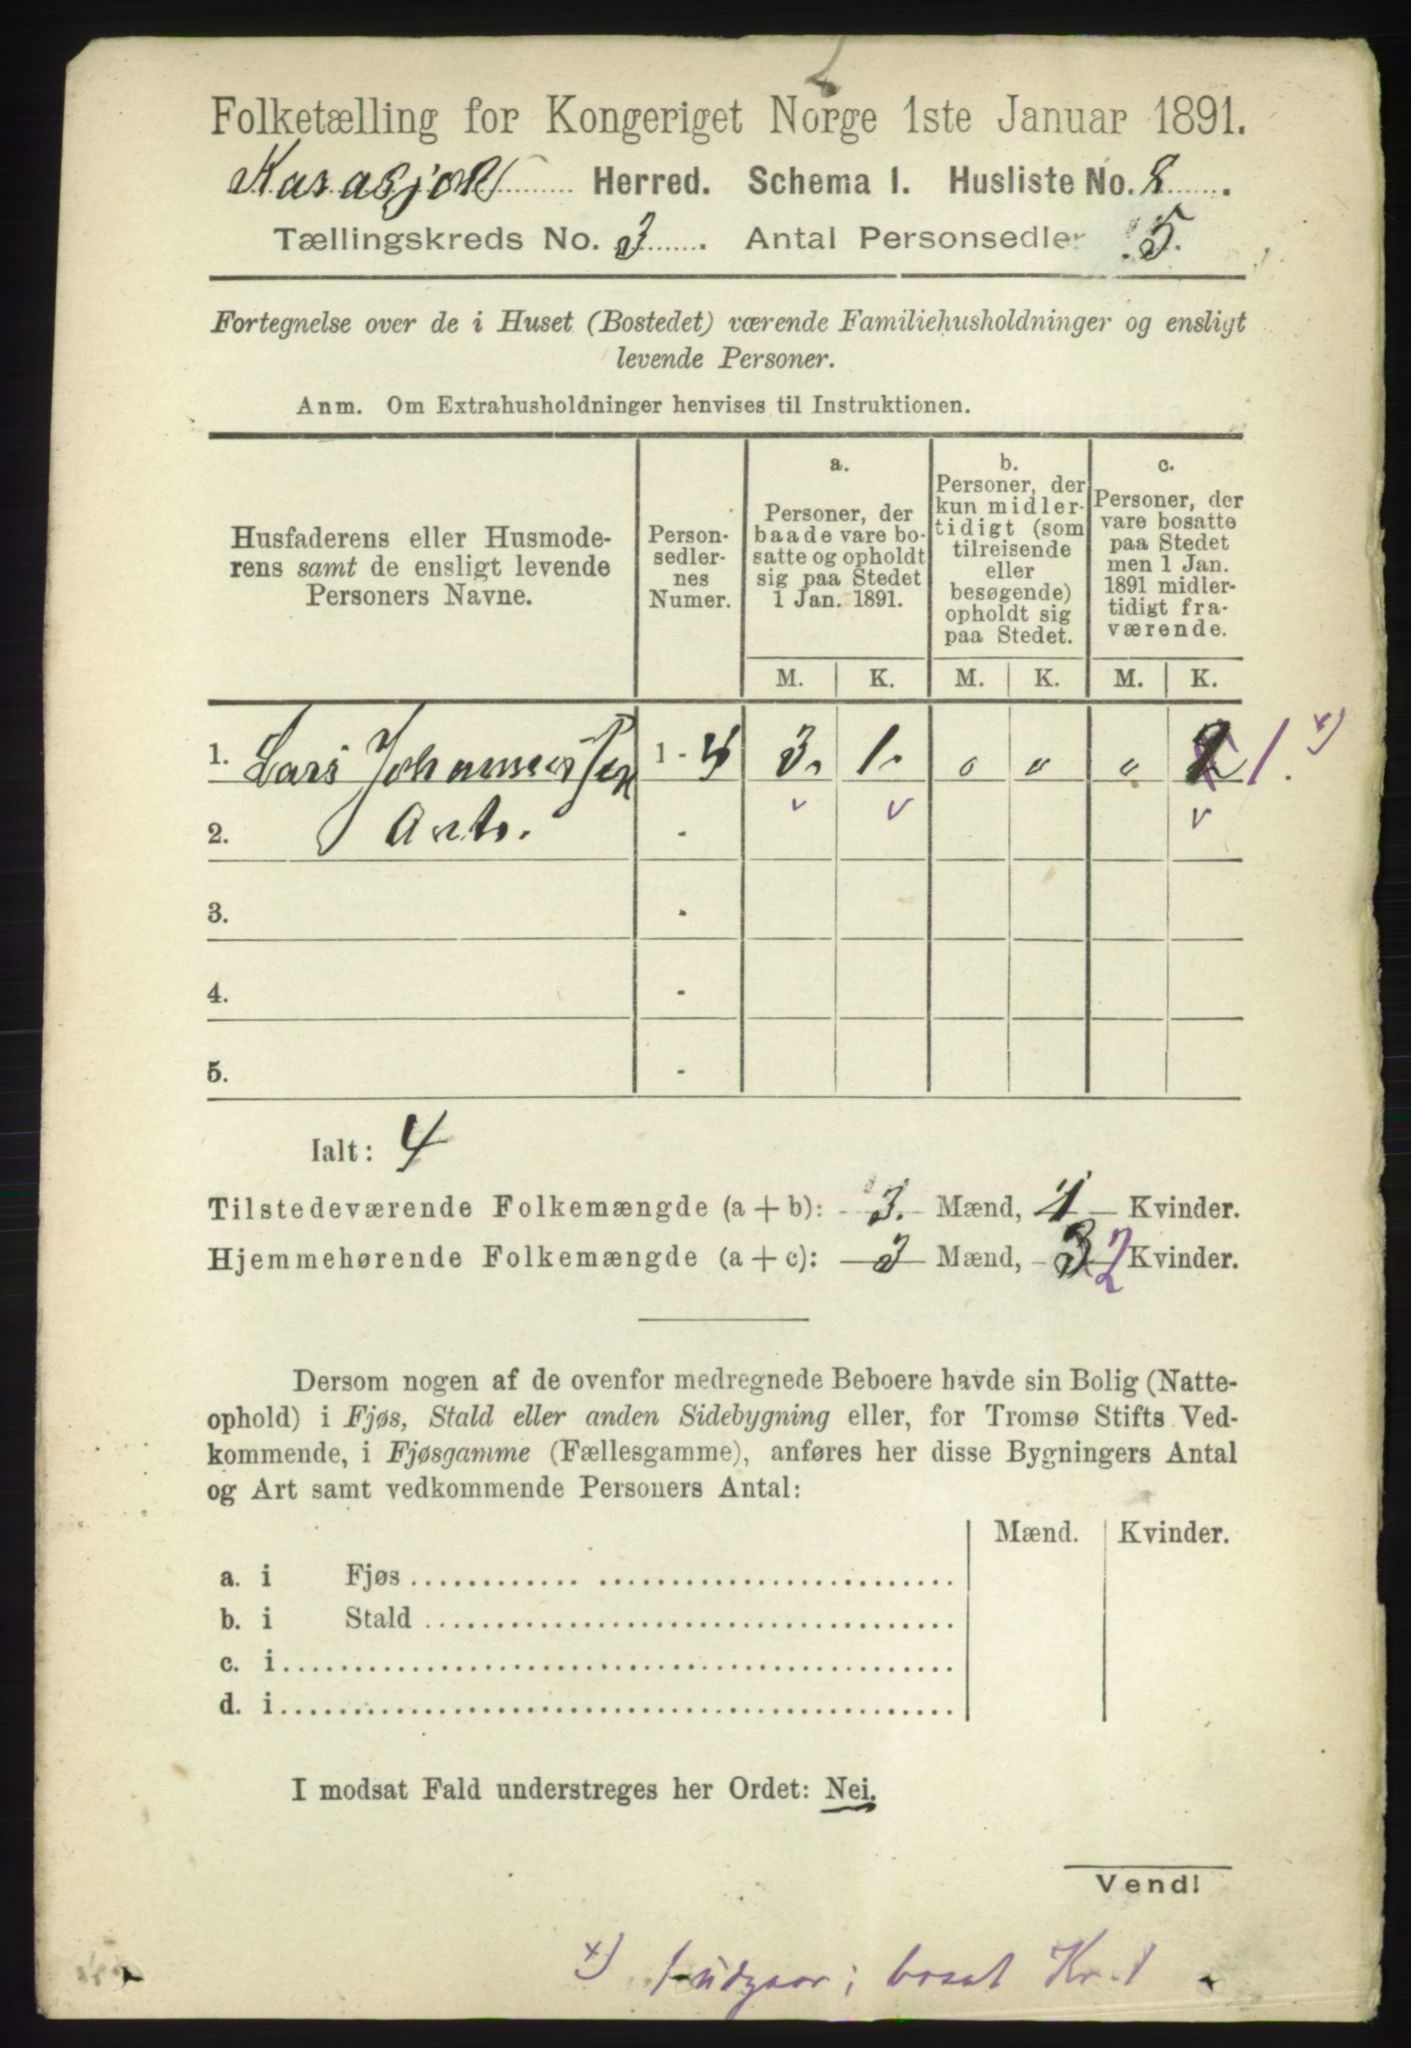 Folketælling for Kongeriget Norge 1ste Januar 1891.
Karasjok Herred. Schema I. Husliste No. 8.
Tællingskreds No. 3. Antal Personsedler 5.
Fortegnelse over de i Huset (Bostedet) værende Familiehusholdninger og ensligt
levende Personer.
Anm. Om Extrahusholdninger henvises til Instruktionen.
Husfaderens eller Husmode-
rens samt de ensligt levende
Personers Navne.
Person-
sedler-
nes
Numer.
a.
Personer, der
baade vare bo-
satte og opholdt
sig paa Stedet
1 Jan. 1891.
b.
Personer, der
kun midler-
tidigt (som
tilreisende
eller
besøgende)
opholdt sig
paa Stedet.
c.
Personer, der
vare bosatte
paa Stedet
men 1 Jan.
1891 midler-
tidigt fra-
værende.
M. K. M. K. M. K.
1. Lars Johannessen 1 - 3. 1. 1. x)
2. Anti.
3.
4.
5.
Ialt: 4
Tilstedeværende Folkemængde (a + b): 3. Mænd, 1 Kvinder.
Hjemmehørende Folkemængde (a + c): 3 Mænd, 3 2 Kvinder.
Dersom nogen af de ovenfor medregnede Beboere havde sin Bolig (Natte-
ophold) i Fjøs, Stald eller anden Sidebygning eller, for Tromsø Stifts Ved-
kommende, i Fjøsgamme (Fællesgamme), anføres her disse Bygningers Antal
og Art samt vedkommende Personers Antal:
Mænd. Kvinder.
a. i Fjøs
b. i Stald
c. i
d. i
I modsat Fald understreges her Ordet: Nei.
Vend!
x) 1 udgaar; bosat Kr. 1